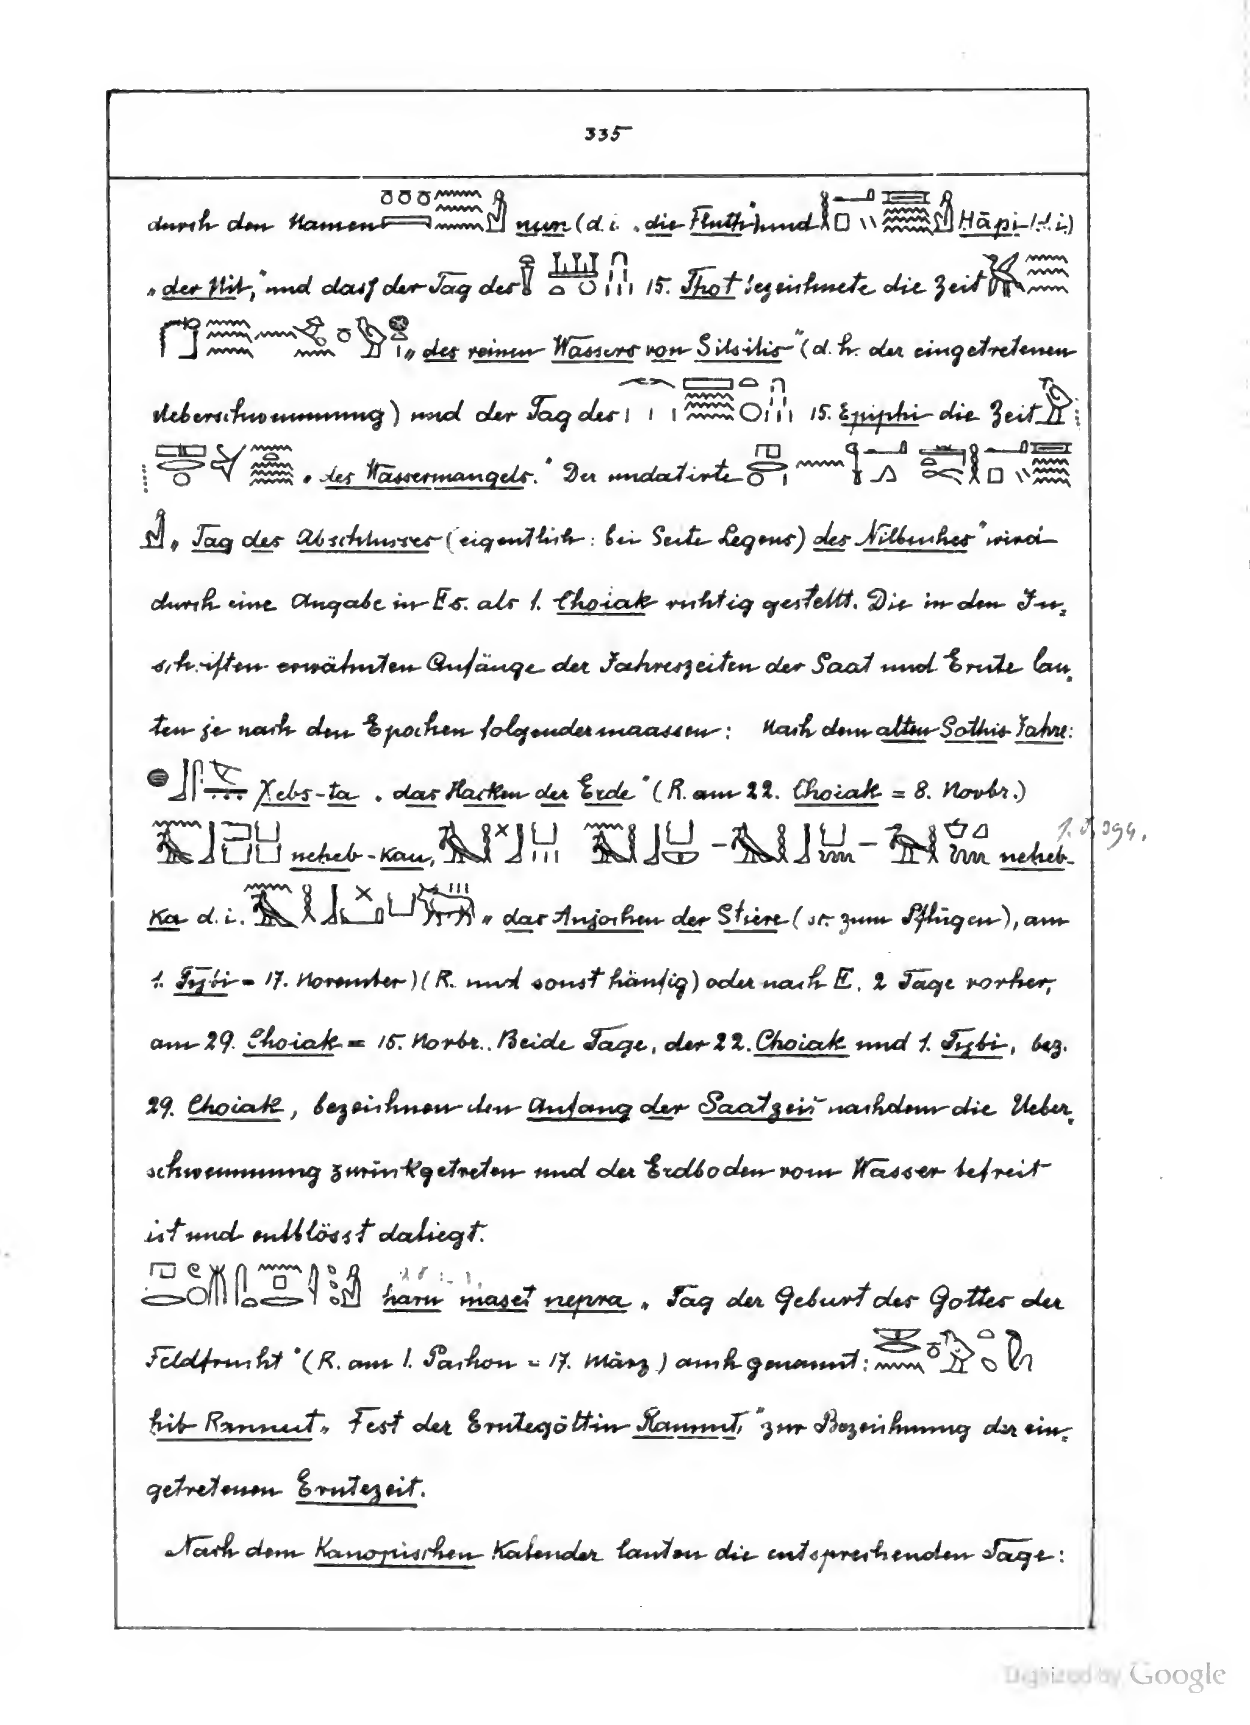 335
durch den Namen nun (d.i. „die Fluth“) und Hāpi (d.i.)
„der Nil,“ und dass der Tag des 15. Thot bezeichnete die Zeit
„des reinen Wassers von Silsilis“ (d. h. der eingetretenen
Ueberschwemmung) und der Tag des 15. Epiphi die Zeit
„des Wassermangels.“ Der undatirte
„Tag des Abschlusses (eigentlich: bei Seite Legens) des Nilbuches“ wird
durch eine Angabe in Es. als 1. Choiak richtig gestellt. Die in den In-
schriften erwähnten Anfänge der Jahreszeiten der Saat und Ernte lau-
ten je nach den Epochen folgendermaassen: Nach dem alten Sothis-Jahre:
Xebs-ta „das Hacken der Erde“ (R. am 22. Choiak = 8. Novbr.)
neheb-kau, neheb- 1. J. 394.
Ka d. i. „das Anjochen der Stiere (sc. zum Pflügen), am
1. Tybi = 17. November) (R. und sonst häufig) oder nach E. 2 Tage vorher,
am 29. Choiak = 15. Novbr. Beide Tage, der 22. Choiak und 1. Tybi, bez.
29. Choiak, bezeichnen den Anfang der Saatzeit nachdem die Ueber-
schwemmung zurückgetreten und der Erdboden vom Wasser befreit
ist und entblösst daliegt.
haru maset nepra „Tag der Geburt des Gottes der
Feldfrucht“ (R. am 1. Pachon = 17. März) auch genannt:
hib Rannut „Fest der Erntegöttin Rannut,“ zur Bezeichnung der ein-
getretenen Erntezeit.
Nach dem Kanopischen Kalender lauten die entsprechenden Tage:
Digitized by Google